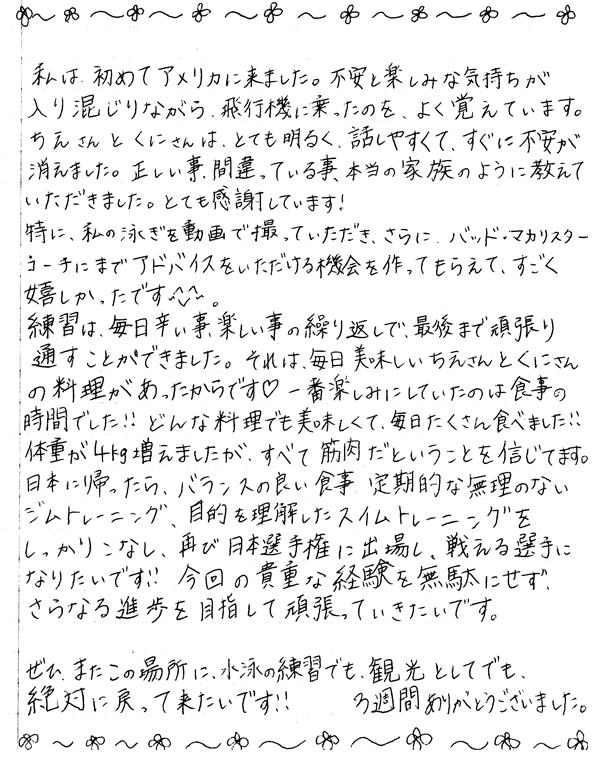 私は、初めてアメリカに来ました。不安と楽しみな気持ちが
入り混じりながら、飛行機に乗ったのを、よく覚えています。
ちえさんとくにさんは、とても明るく、話しやすくて、すぐに不安が
消えました。正しい事、間違っている事、本当の家族のように教えて
いただきました。とても感謝しています!
特に、私の泳ぎを動画で撮っていただき、さらに、バッド・マカリスター
コーチにまでアドバイスをいただける機会を作ってもらえて、すごく
嬉しかったです^^。
練習は、毎日辛い事、楽しい事の繰り返しで、最後まで頑張り
通すことができました。それは、毎日美味しいちえさんとくにさん
の料理があったからです♡ 一番楽しみにしていたのは食事の
時間でした!! どんな料理でも美味しくて、毎日たくさん食べました!!
体重が4kg増えましたが、すべて筋肉だということを信じてます。
日本に帰ったら、バランスの良い食事、定期的な無理のない
ジムトレーニング、目的を理解したスイムトレーニングを
しっかりこなし、再び日本選手権に出場し、戦える選手に
なりたいです!! 今回の貴重な経験を無駄にせず、
さらなる進歩を目指して頑張っていきたいです。
ぜひ、またこの場所に、水泳の練習でも、観光としてでも、
絶対に戻って来たいです!! 3週間ありがとうございました。